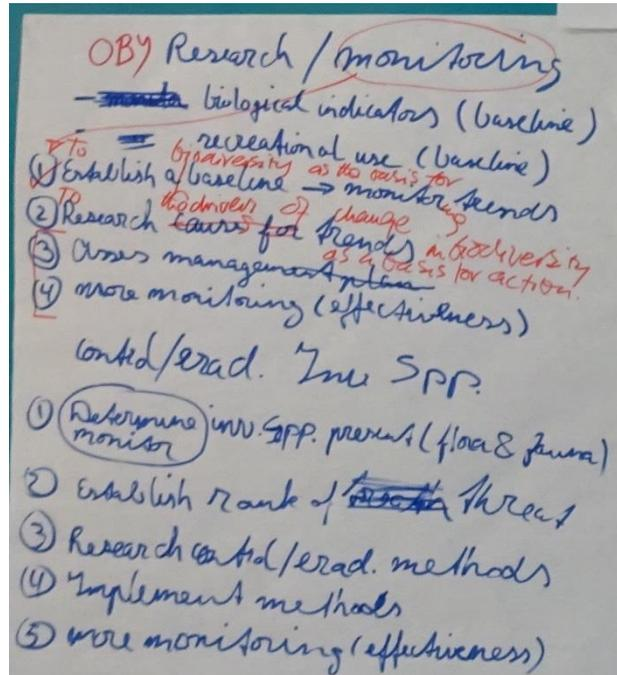 OBY Research / monitoring
- biological indicators (baseline)
- recreational use (baseline)
To biodiversity as the basis for
① Establish a baseline → monitor trends
To the drivers of change ing
② Research causes for trends in biodiversity
as a basis for action.
③ Asses management plan
④ more monitoring (effectiveness)
contol/erad. Inv Spp.
① Determine inv. Spp. present (flora & fauna)
monitor
② Establish rank of threat
③ Research contol/erad. methods
④ Implement methods
⑤ more monitoring (effectiveness)